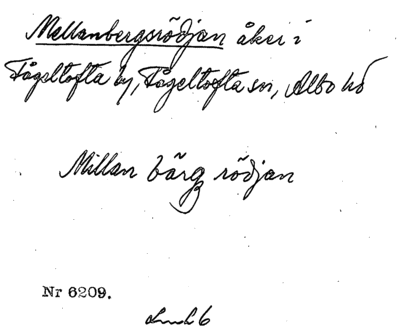 Mellanbergsrödjan åker i
Fågeltofta by, Fågeltofta sn, Albo hd
Millan bärg rödjan
Nr 6209.